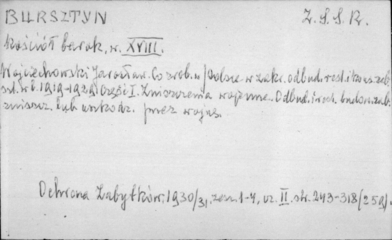 BURSZTYN Z.S.S.R.
Kościół barok. w. XVIII.
Wojciechowski Jarosław. Co zrob. w Polsce w zakr. odbud. rest. i kons. zab.
szt. w l. 1919-1929 Część I. Zniszczenia wojenne. Odbud. i rest. budow. zab.
zniszcz. lub uszkodz. przez wojnę.
Ochrona Zabytków. 1930/31. zesz. 1-4, cz. II. str. 243-318 (259).